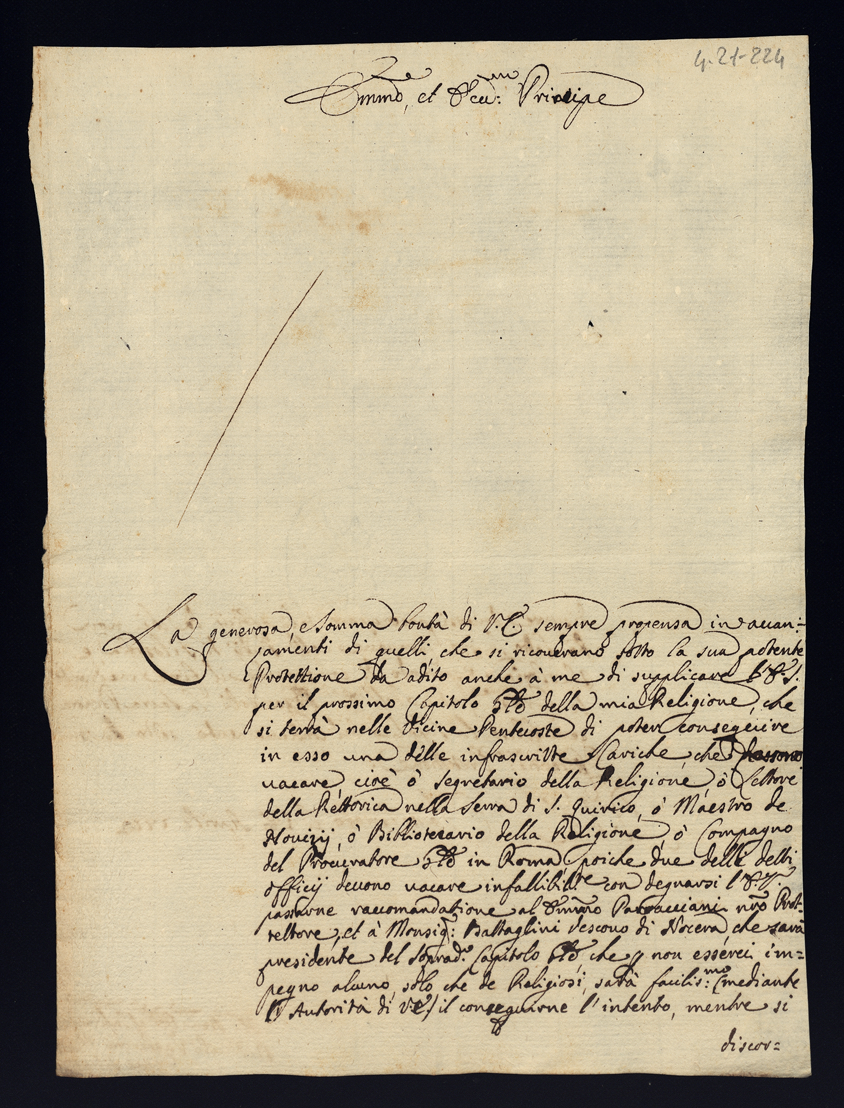 4-21-224
Emin.o, et Ecc.mo: Principe
La generosa, e somma bontà di V.E. sempre propensa in auan-
zamenti di quelli che si ricouerano sotto la sua potente
Protettione da àdito anche à me di supplicare l'E.V.
per il prossimo Capitolo Gñle della mia Religione, che
si terrà nelle vicine Pentecoste di poter conseguire
in esso una delle infrascritte Cariche, che possono
uacare, cioè ò segretario della Religione, ò Lettore
della Rettorica nella Terra di S. Quirico, ò Maestro de
Nouizij, ò Bibliotecario della Religione ò Compagno
del Procuratore Gñle in Roma, poiche due delle detti
officij deuono uacare infallibilte con degnarsi l'E.V.
passarne raccomandatione al Emin̄o Paracciani nr̄o Prot-
tettore, et à Monsig.: Battaglini Vescouo di Nocera che sarà
presidente del soprad.o Capitolo Gñle, che p non esserci im=
pegno alcuno, solo che de Religiosi, sarà facilis:mo (mediante
l'Autorità di V.E.) il conseguirne l'intento, mentre si
discor=